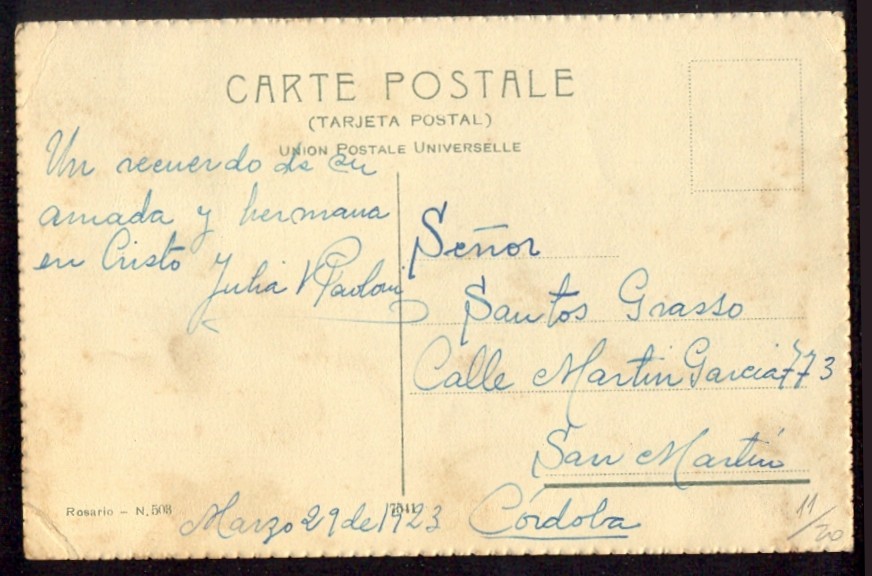 CARTE POSTALE
(TARJETA POSTAL)
UNION POSTALE UNIVERSELLE
Un recuerdo de su
amada y hermana
en Cristo y
Julia Paoloni
Señor
Santos Grasso
Calle Martin Garcia 773
San Martín
Córdoba
Rosario – N. 503
Marzo 29 de 1923
11/20